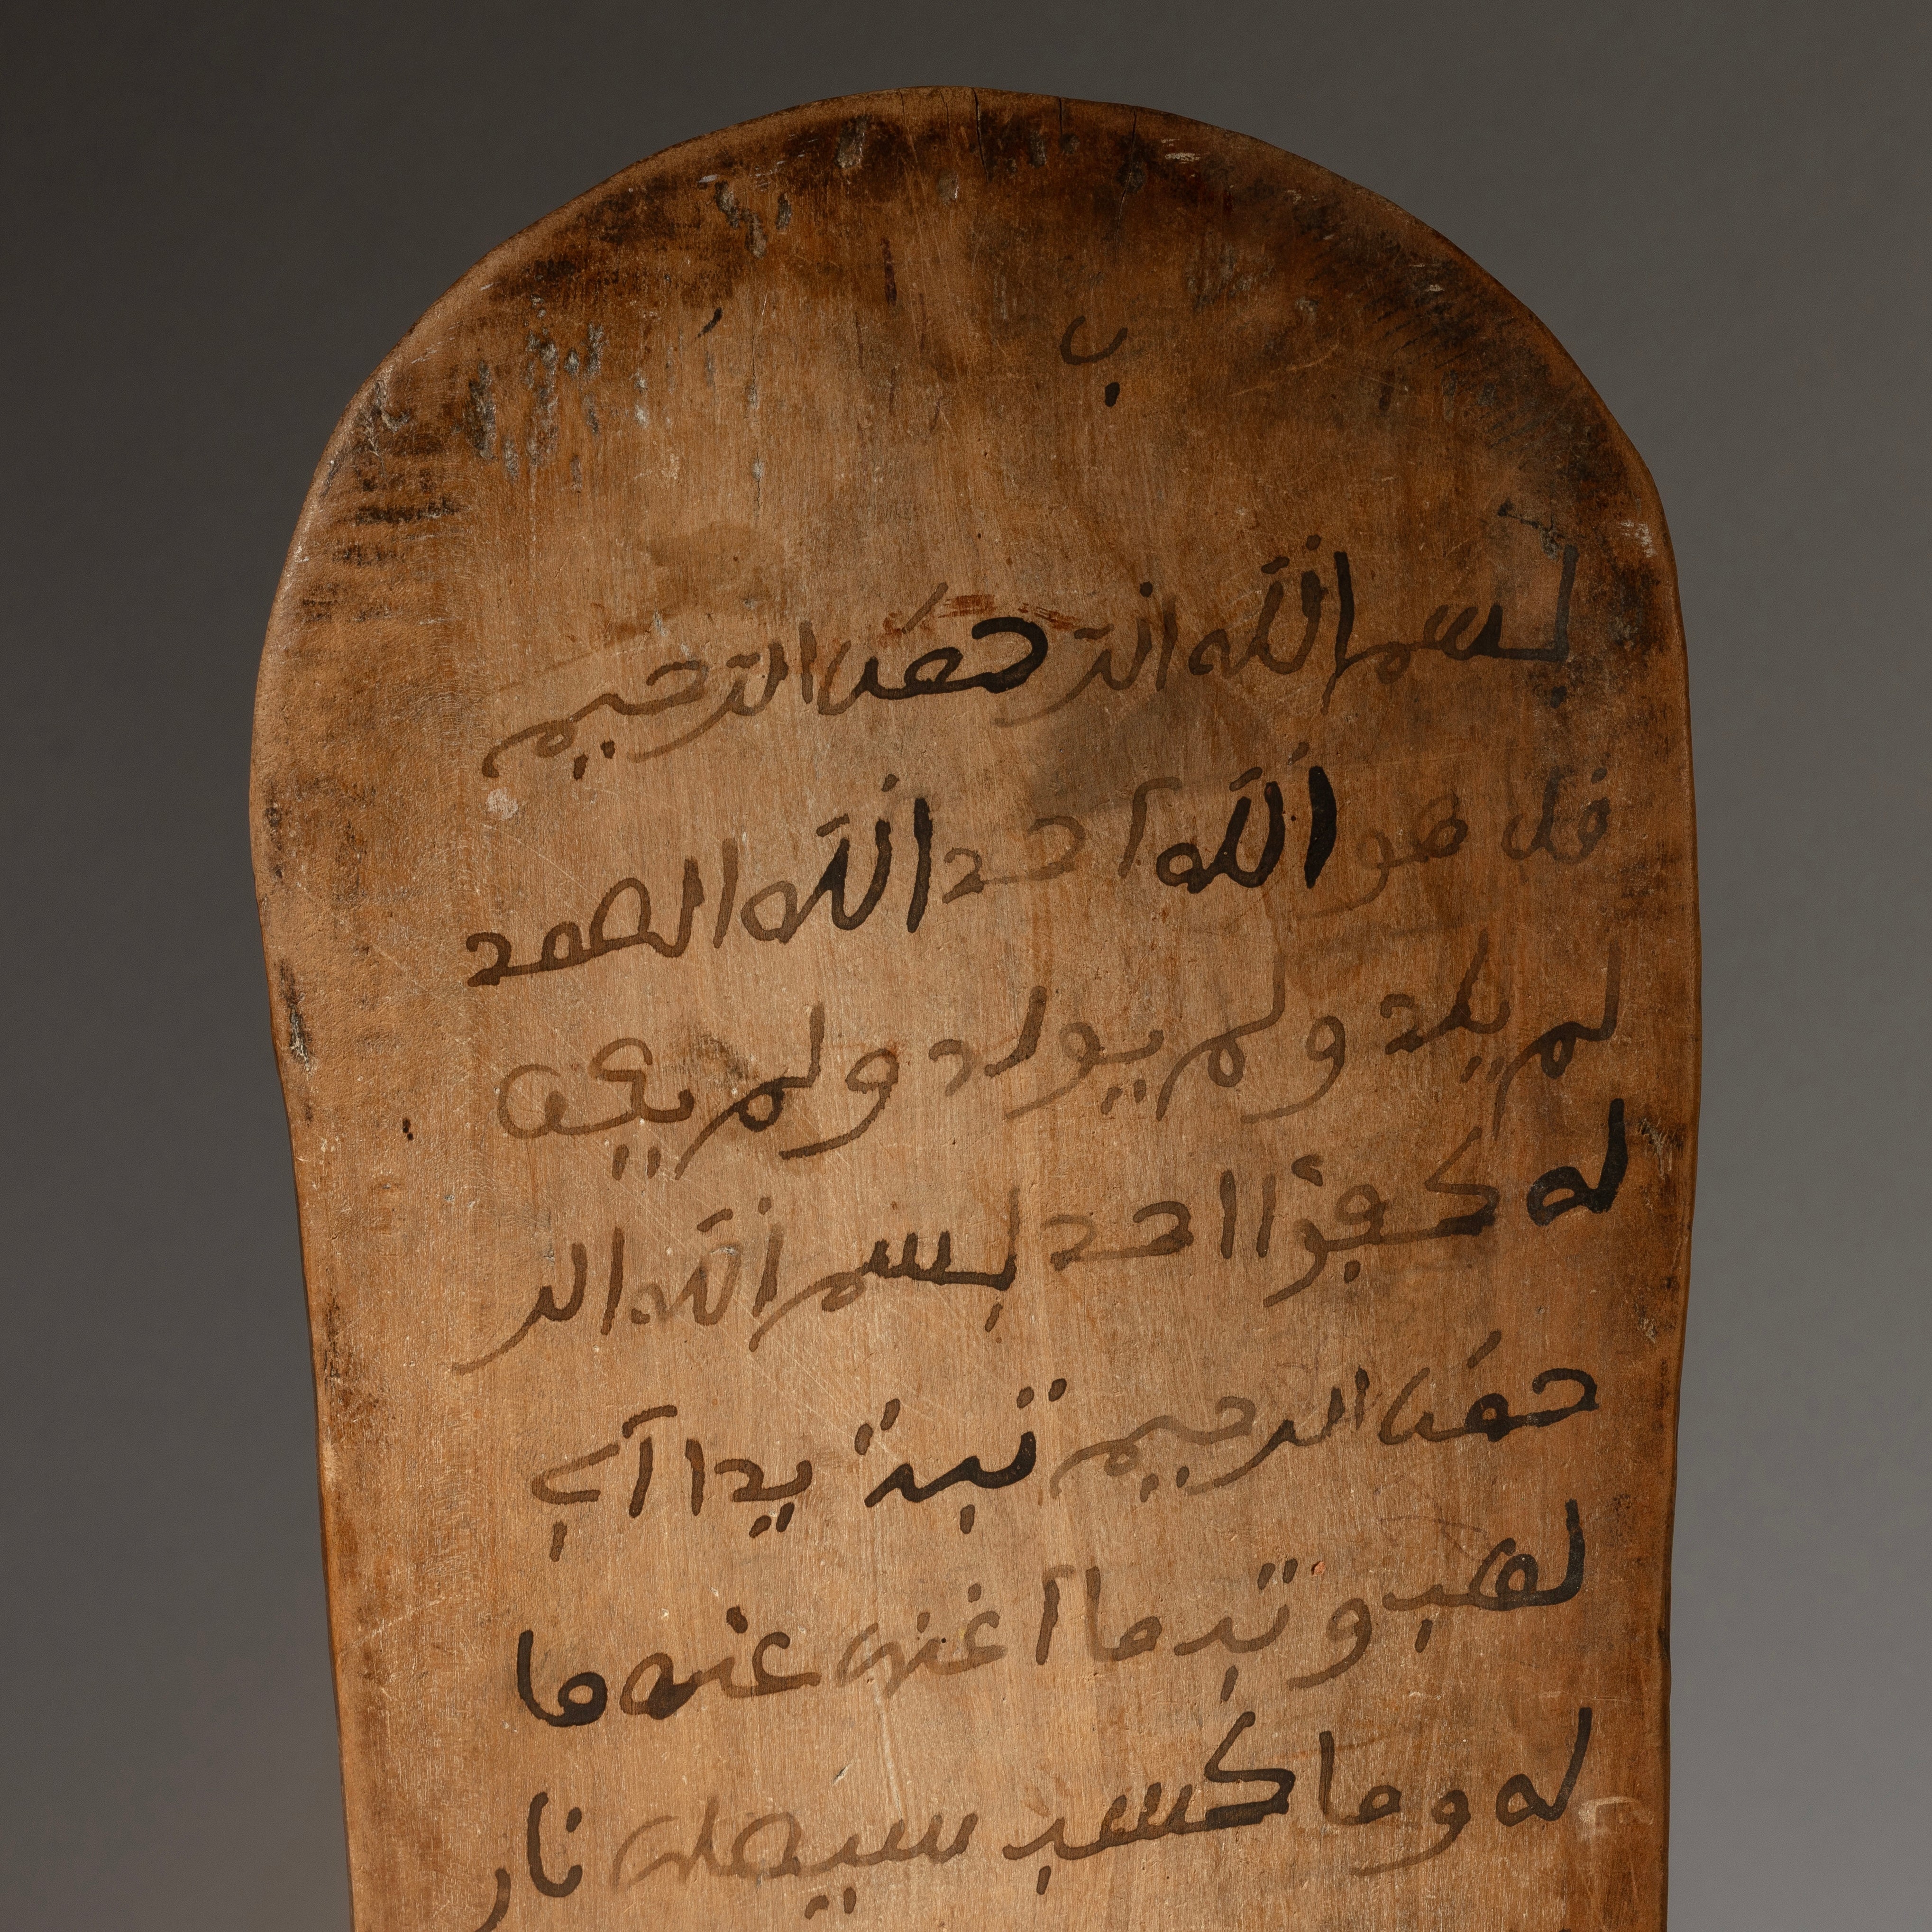 ب
بسم الله الرحمن الرحيم
فل هو الله احد الله الصمد
لم يلد ولم يولد ولم يكن
له كفؤا احد بسم الله الر
حمن الرحيم تبت يدا ابے
لهب وتب ما اغنى عنه ما
له وما كسب سيصلى نار